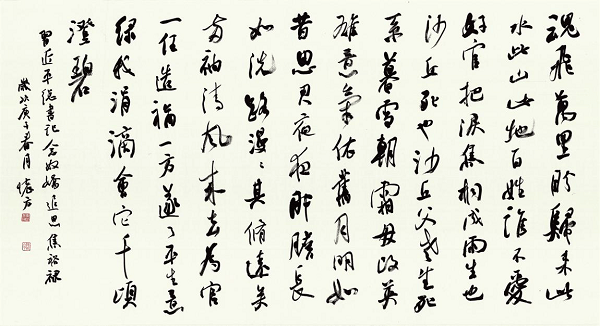 魂飛萬里盼歸來此
水此山此地百姓誰不愛
好官把淚焦桐成雨生也
沙丘死也沙丘父老生死
系暮雪朝霜毋改英
雄意氣依舊月明如
昔思君夜夜肝膽長
如洗路漫々其脩遠矣
兩袖清風來去為官
一任造福一方遂了平生意
綠我涓滴會它千頃
澄碧
習近平總書記念奴嬌追思焦裕祿
歲次庚子春月